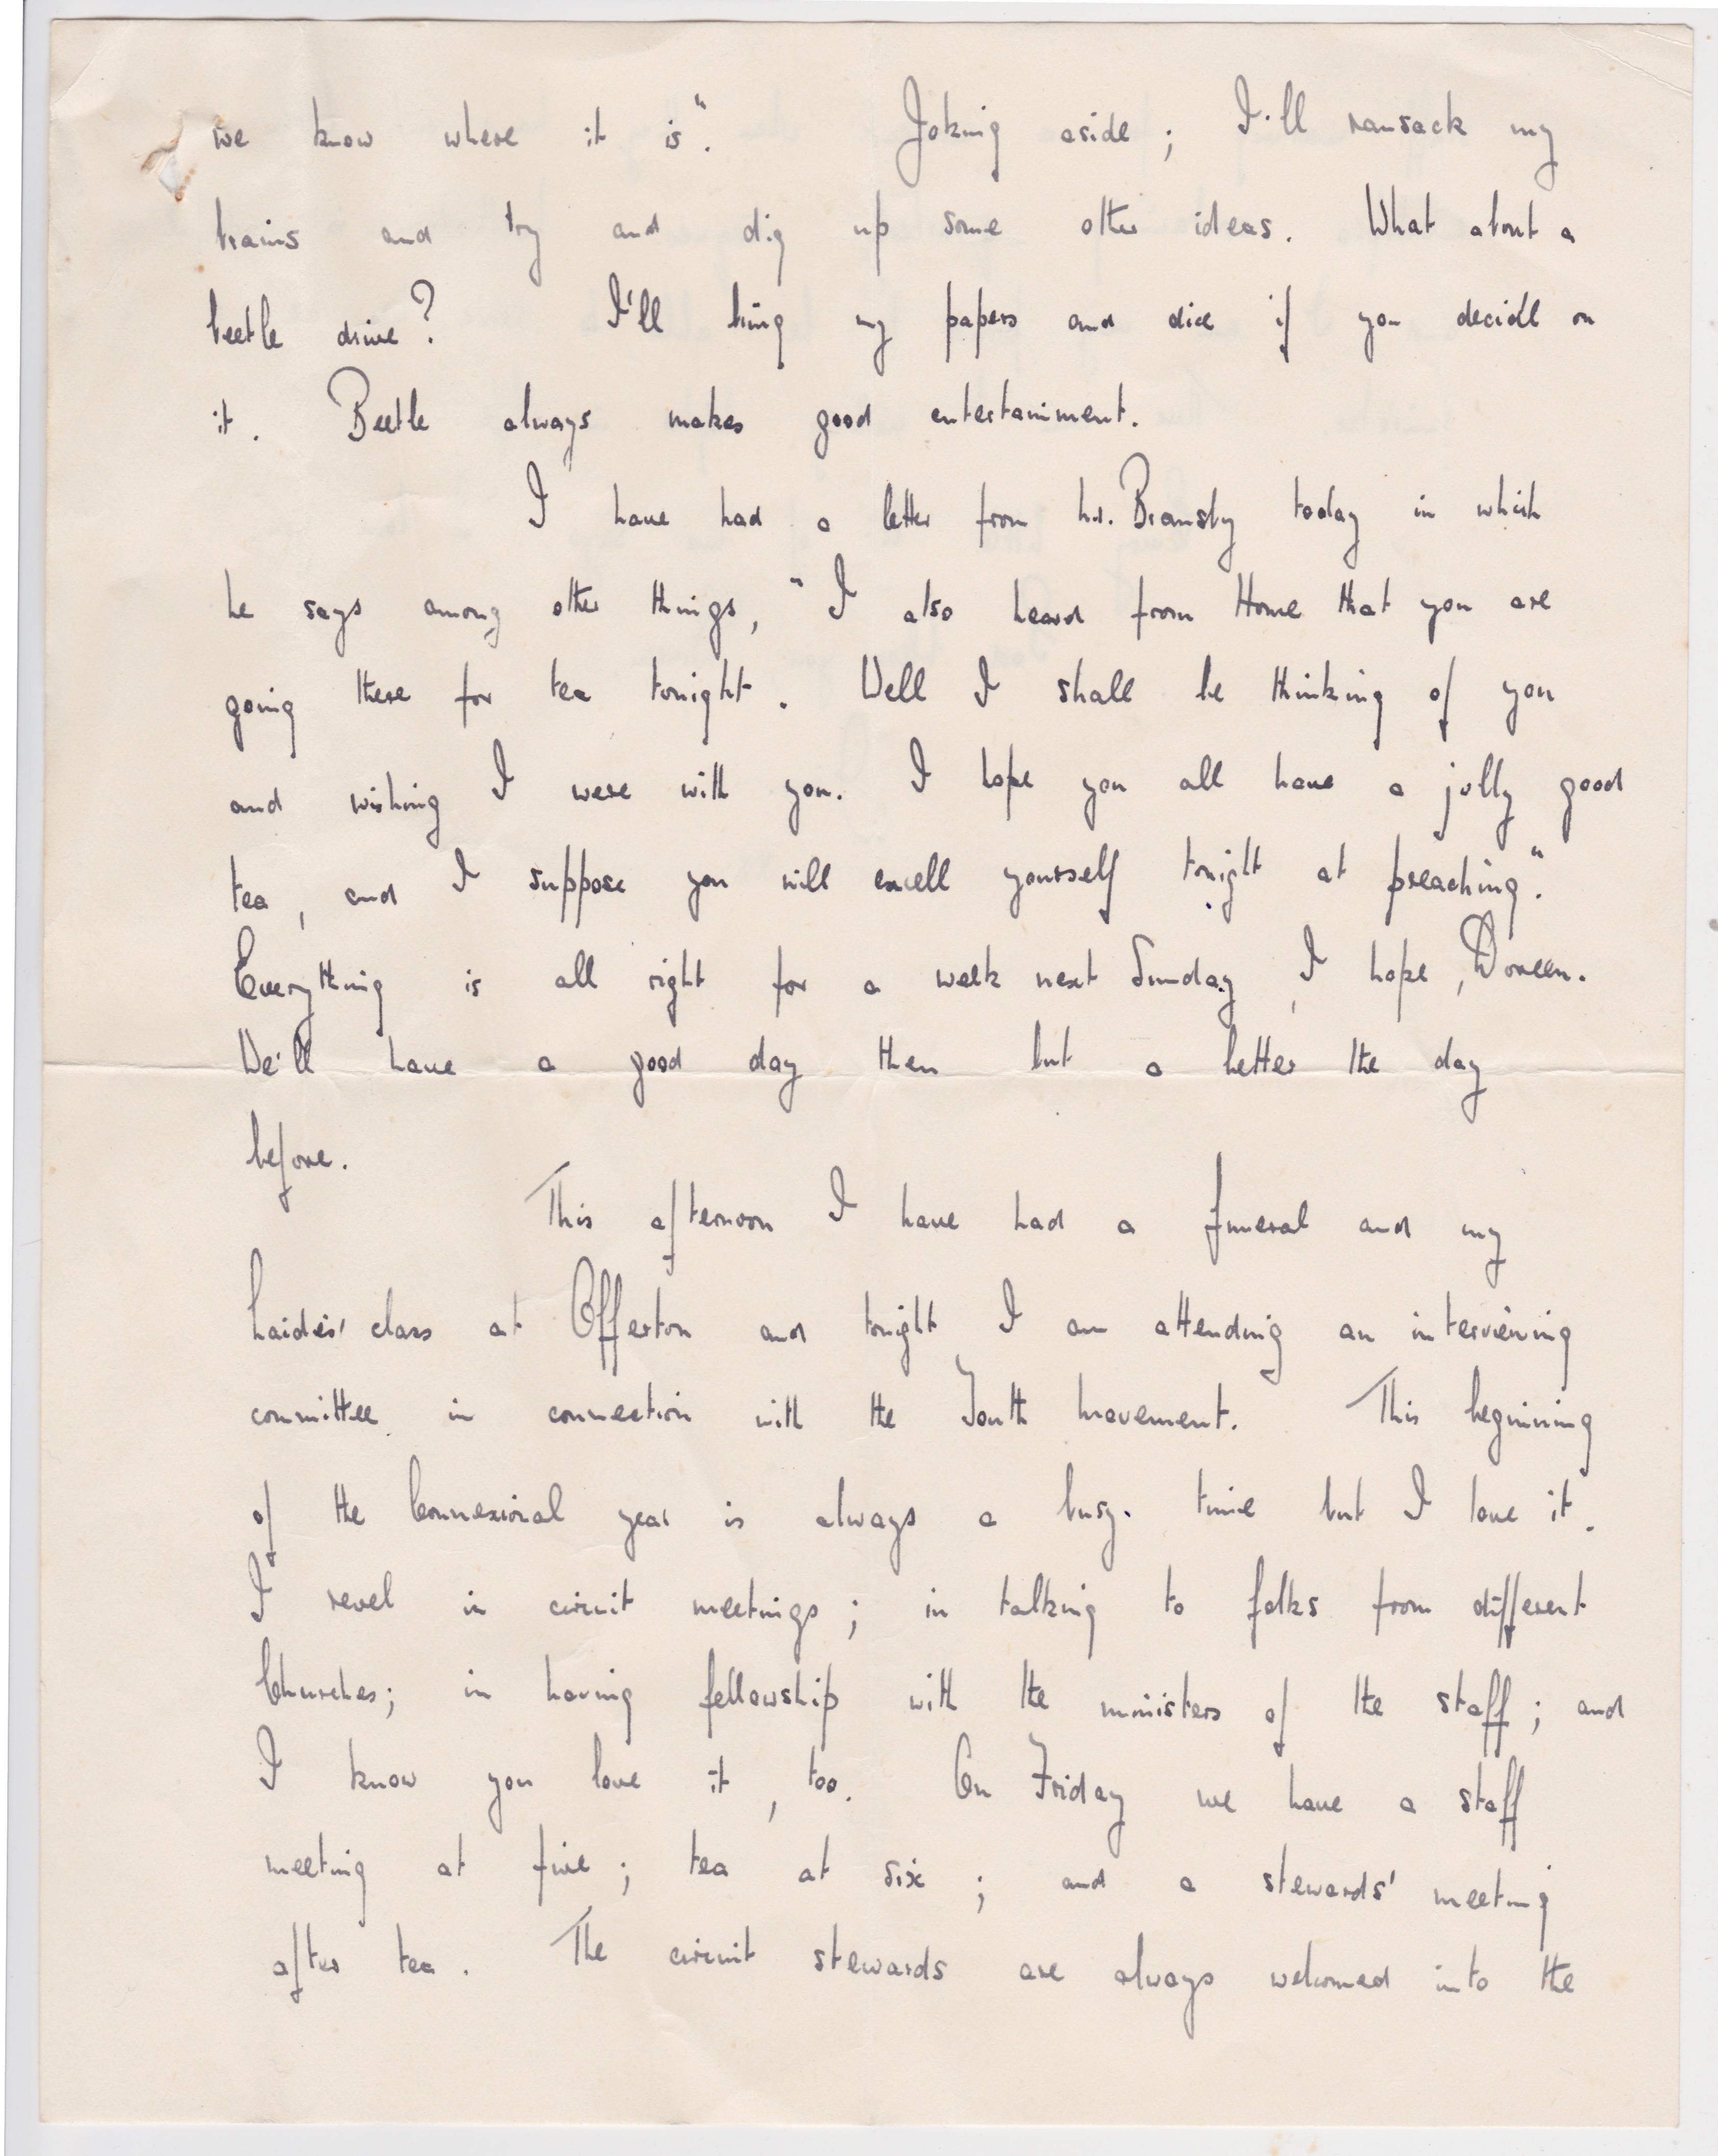 we know where it is". Joking aside; I'll ransack my
brains and try and dig up some other ideas. What about a
beetle drive? I'll bring my papers and dice if you decide on
it. Beetle always makes good entertainment.
I have had a letter from Mr. Bramsby today in which
he says among other things, "I also heard from Home that you are
going there for tea tonight. Well I shall be thinking of you
and wishing I were with you. I hope you all have a jolly good
tea, and I suppose you will excell yourself tonight at preaching."
Everything is all right for a week next Sunday, I hope, Doreen.
We'll have a good day then but a better the day
before.
This afternoon I have had a funeral and my
Laidies' class at Offerton and tonight I am attending an interviewing
committee in connection with the Youth Movement. This beginning
of the Connexional year is always a busy time but I love it.
I revel in circuit meetings; in talking to folks from different
Churches; in having fellowship with the ministers of the staff; and
I know you love it, too. On Friday we have a staff
meeting at five; tea at six; and a stewards' meeting
after tea. The circuit stewards are always welcomed into the